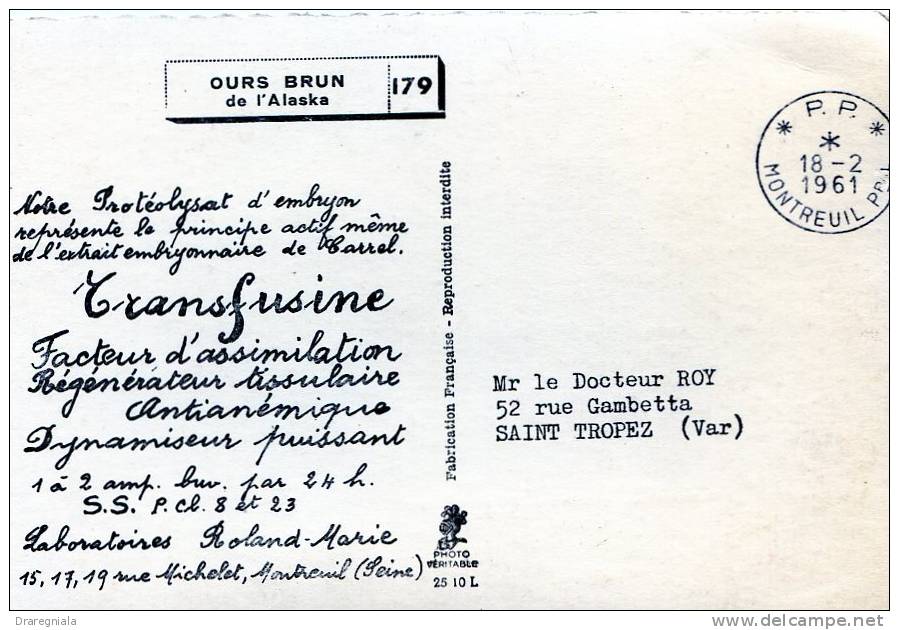 OURS BRUN
de l'Alaska
179
* P. P. *
*
18-2
1961
MONTREUIL PPAL
Notre Protéolysat d'embryon
représente le principe actif même
de l'extrait embryonnaire de Carrel.
Transfusine
Facteur d'assimilation
Régénérateur tissulaire
Antianémique
Dynamiseur puissant
1 à 2 amp. buv. par 24 h.
S.S. P. Cl. 8 et 23
Laboratoires Roland-Marie
15, 17, 19 rue Michelet, Montreuil (Seine)
Fabrication Française - Reproduction interdite
PHOTO
VÉRITABLE
25 10 L
Mr le Docteur ROY
52 rue Gambetta
SAINT TROPEZ (Var)
Draregniala
delcampe.net